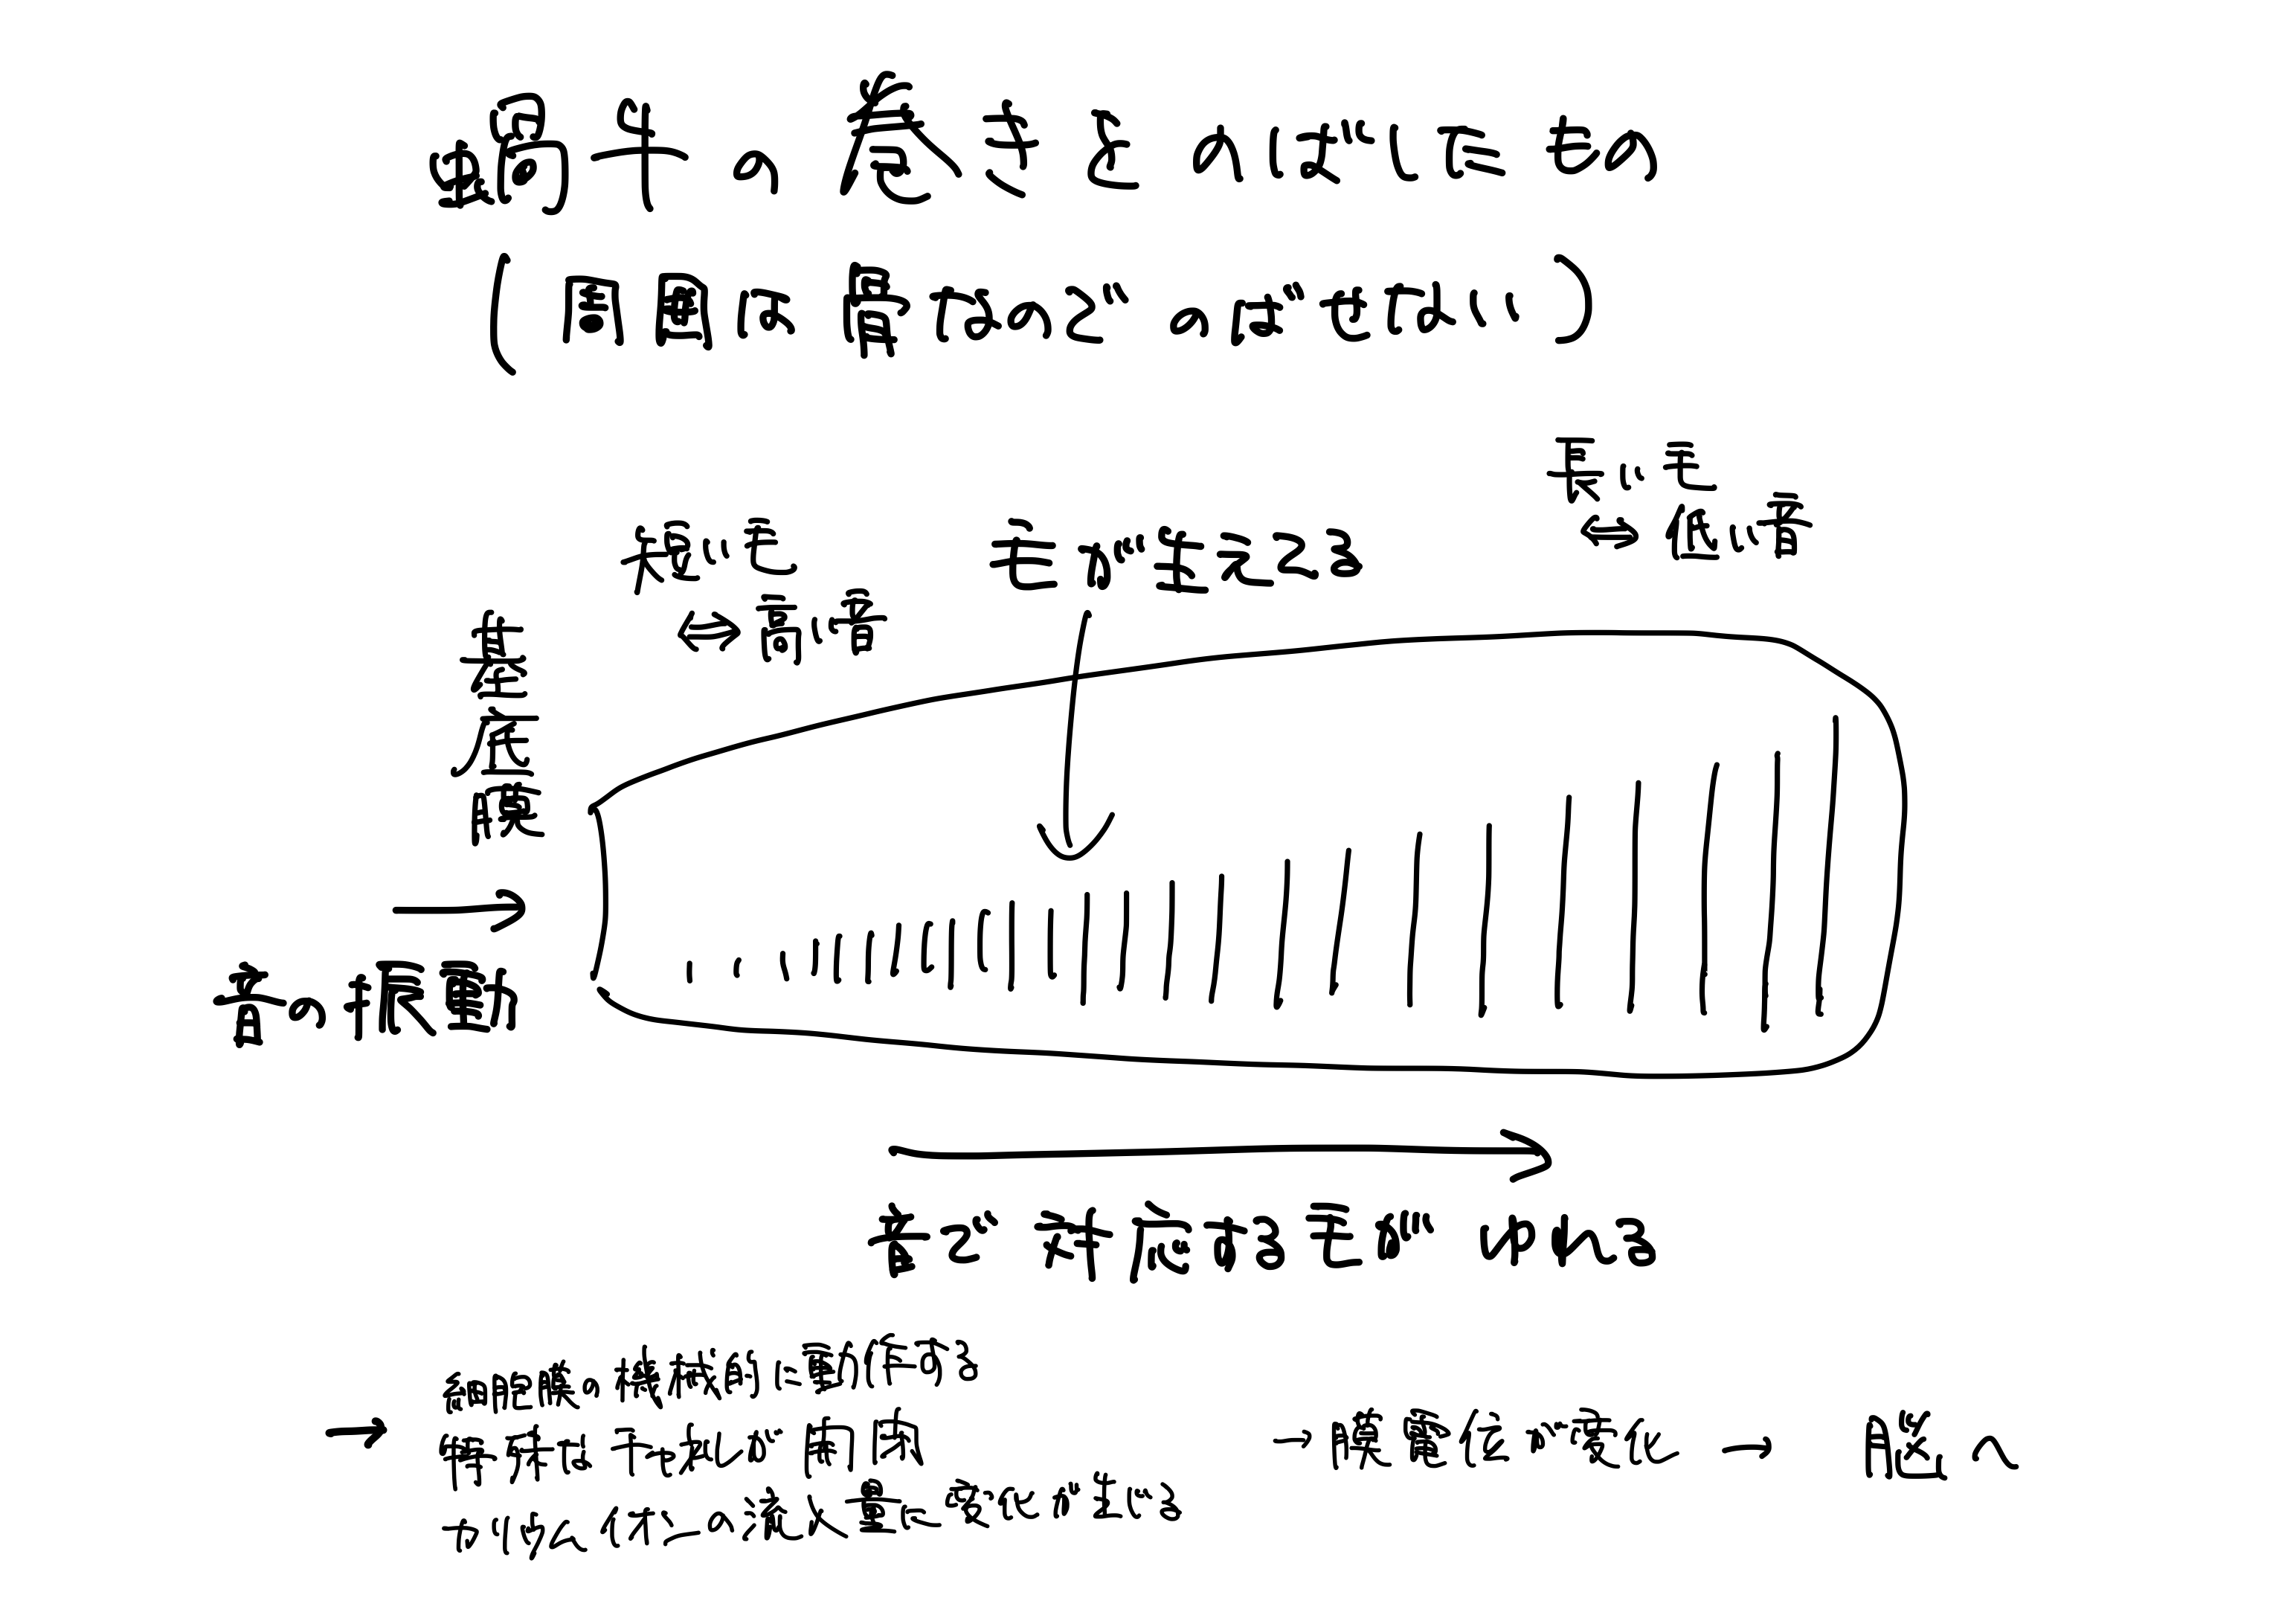 蝸牛の巻きをのばしたもの
(周囲は骨なのでのばせない)
長い毛
⇔低い音
短い毛
⇔高い音
毛が生えてる
基底膜
→
音の振動
→
音で対応する毛が ゆれる
→ 細胞膜の機械的に動作する
特殊な千ャネルが開閉
カリウムイオンの流入量に変化が生じる
→膜電位が変化 → 脳へ